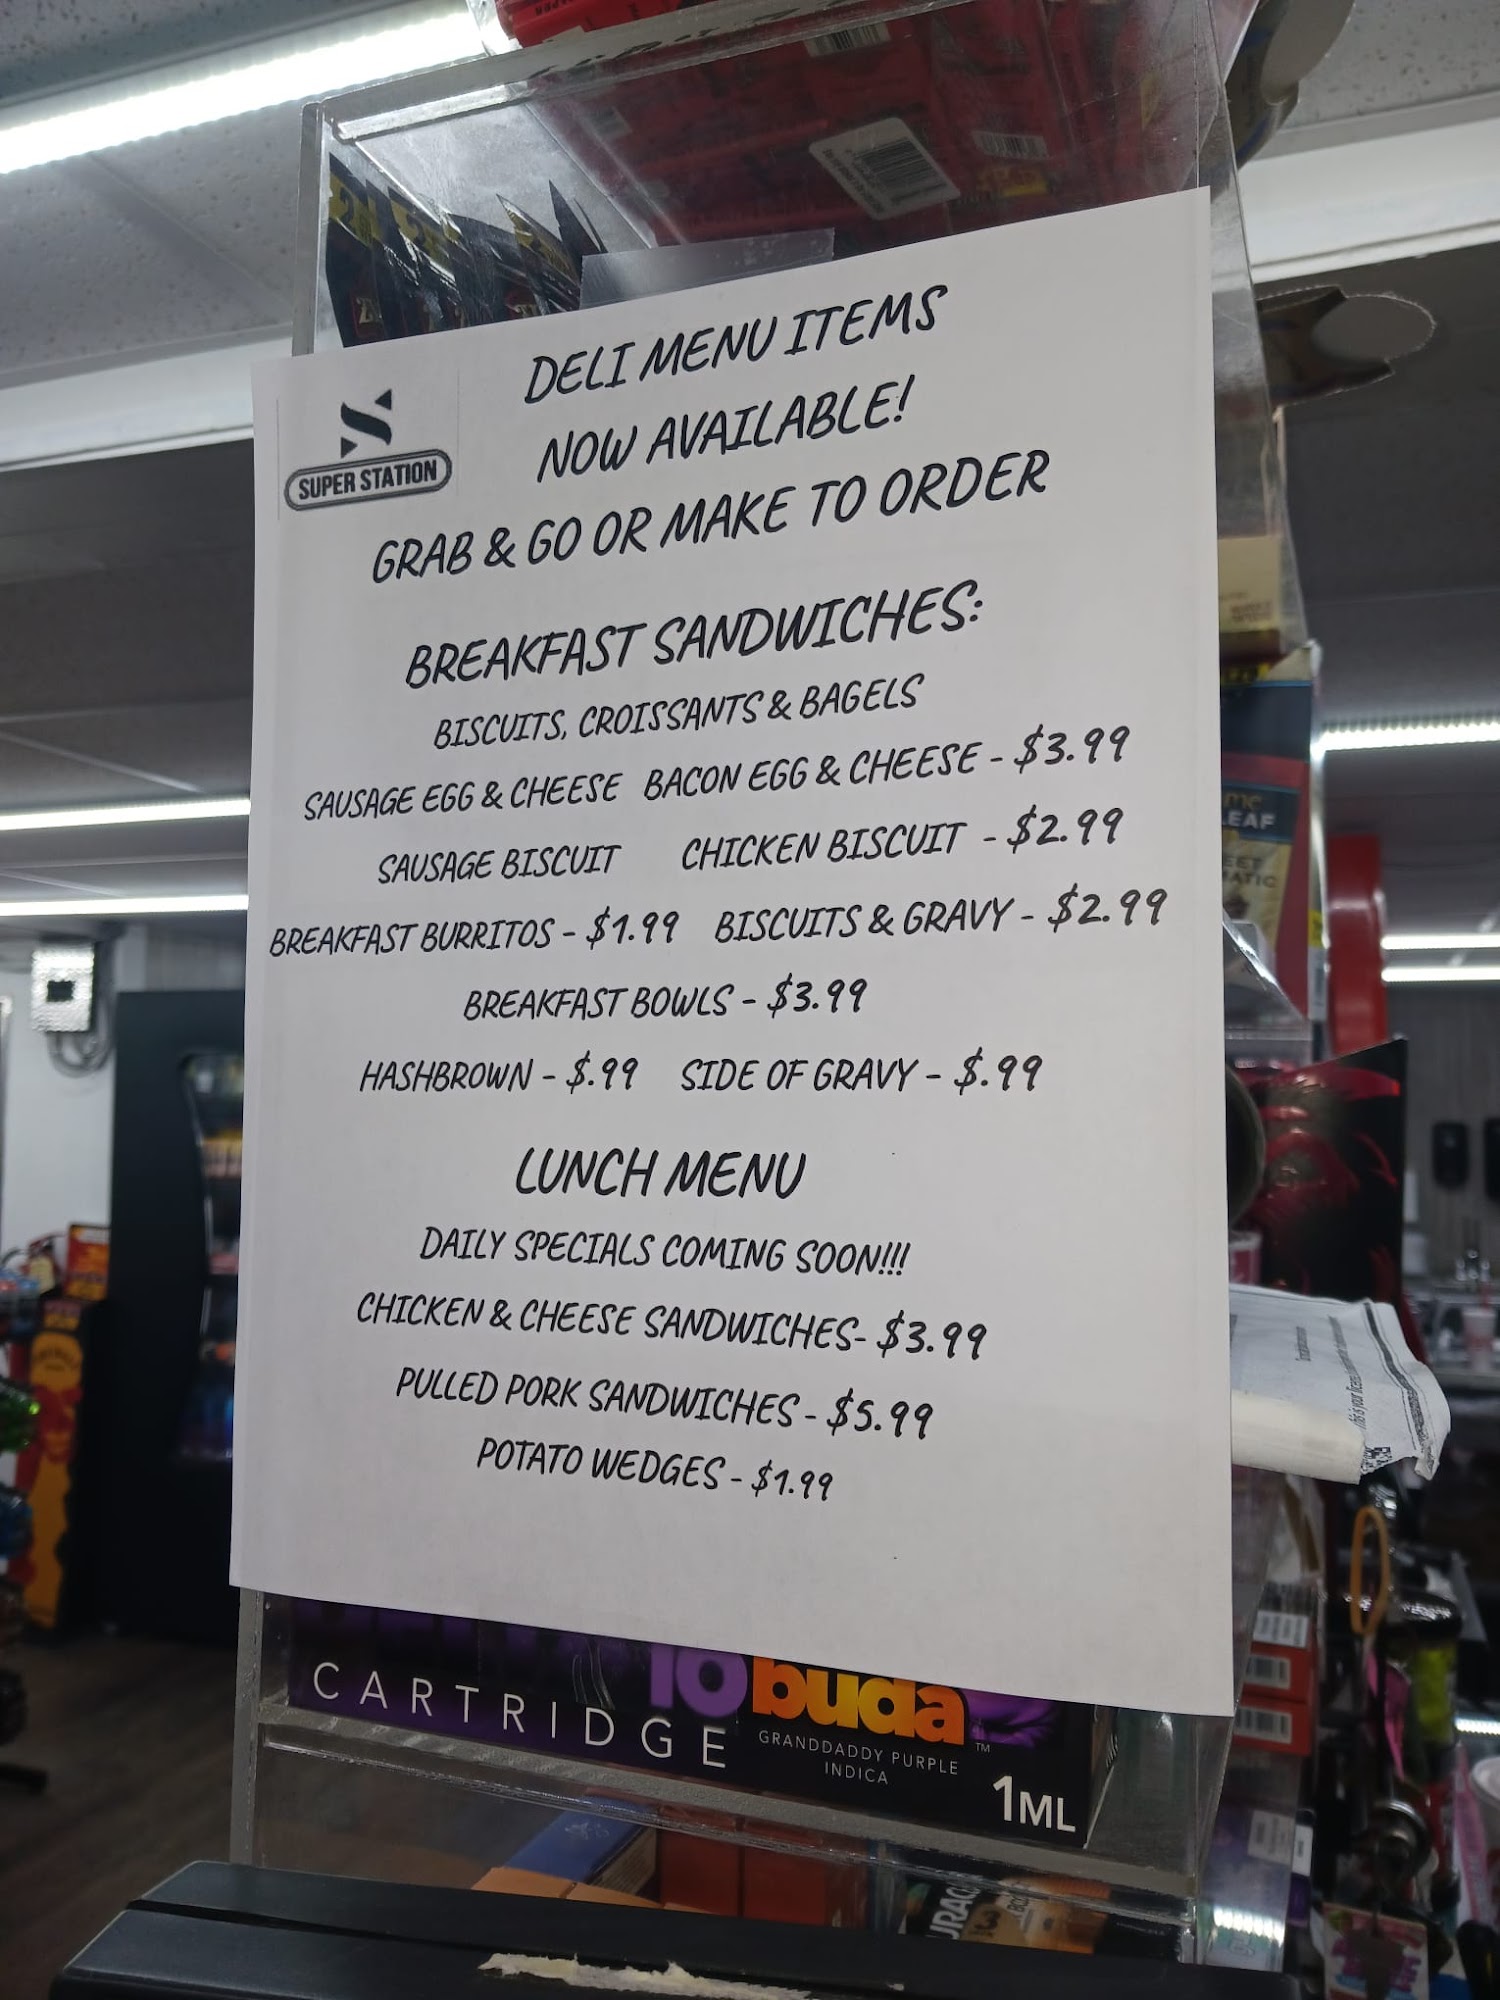 DELI MENU ITEMS
NOW AVAILABLE!
SUPER STATION
GRAB & GO OR MAKE TO ORDER
BREAKFAST SANDWICHES:
BISCUITS, CROISSANTS & BAGELS
SAUSAGE EGG & CHEESE BACON EGG & CHEESE - $3.99
SAUSAGE BISCUIT CHICKEN BISCUIT - $2.99
BREAKFAST BURRITOS - $1.99 BISCUITS & GRAVY - $2.99
BREAKFAST BOWLS - $3.99
HASHBROWN - $.99 SIDE OF GRAVY - $.99
LUNCH MENU
DAILY SPECIALS COMING SOON!!!
CHICKEN & CHEESE SANDWICHES- $3.99
PULLED PORK SANDWICHES - $5.99
POTATO WEDGES - $1.99
CARTRIDGE
buda
GRANDDADDY PURPLE
INDICA
TM
1ML
LEAF